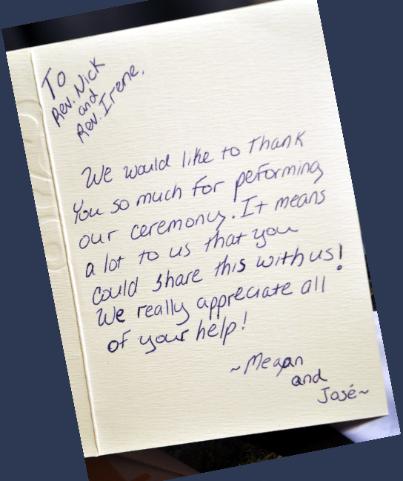 To
Rev. Nick
and
Rev. Irene,
We would like to Thank
you so much for peforming
our ceremony. It means
a lot to us that you
could share this with us!
We really appreciate all
of your help!
~Megan
and
José~